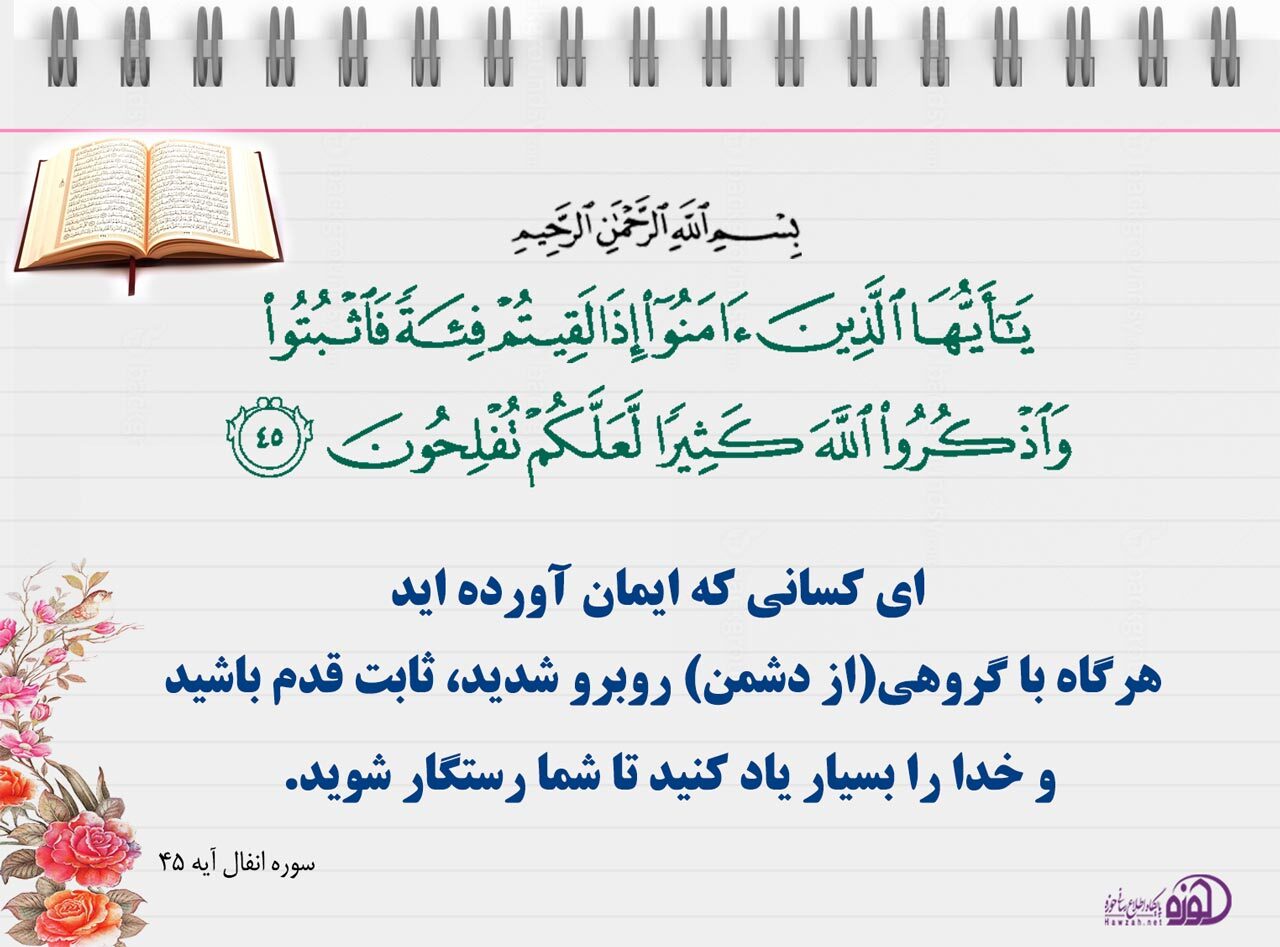 بِسْمِ ٱللَّهِ ٱلرَّحْمَٰنِ ٱلرَّحِيمِ
يَٰٓأَيُّهَا ٱلَّذِينَ ءَامَنُوٓا۟ إِذَا لَقِيتُمْ فِئَةً فَٱثْبُتُوا۟
وَٱذْكُرُوا۟ ٱللَّهَ كَثِيرًا لَّعَلَّكُمْ تُفْلِحُونَ ٤٥
ای کسانی که ایمان آورده اید
هرگاه با گروهی(از دشمن) روبرو شدید، ثابت قدم باشید
و خدا را بسیار یاد کنید تا شما رستگار شوید.
سوره انفال آیه ۴۵
حوزه پایگاه اطلاع رسانی حوزه
Hawzah.net